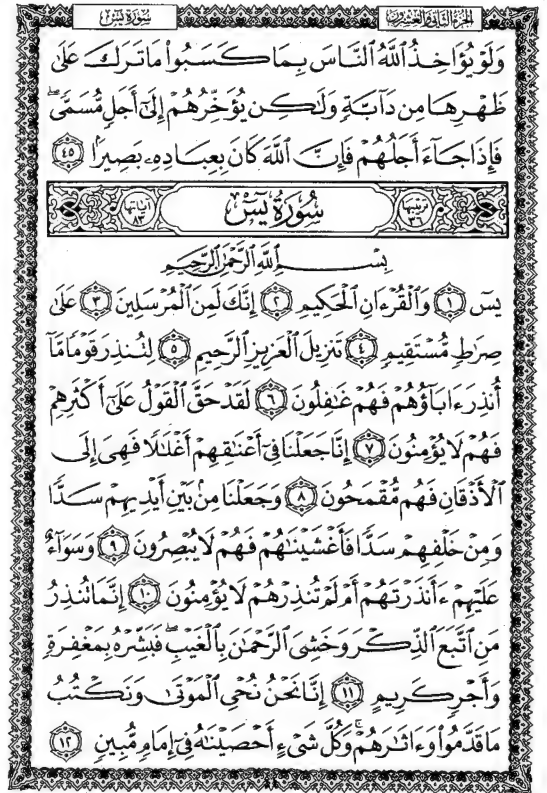 سُورَةُ يسٓ الجُزْءُ الثَّانِي وَالعِشْرُونَ
وَلَوْ يُؤَاخِذُ ٱللَّهُ ٱلنَّاسَ بِمَا كَسَبُوا۟ مَا تَرَكَ عَلَىٰ
ظَهْرِهَا مِن دَآبَّةٍ وَلَٰكِن يُؤَخِّرُهُمْ إِلَىٰٓ أَجَلٍ مُّسَمًّى ۖ
فَإِذَا جَآءَ أَجَلُهُمْ فَإِنَّ ٱللَّهَ كَانَ بِعِبَادِهِۦ بَصِيرًۢا ٤٥
ترتيبها ٣٦ سُورَةُ يسٓ آياتها ٨٣
بِسْمِ ٱللَّهِ ٱلرَّحْمَٰنِ ٱلرَّحِيمِ
يسٓ ١ وَٱلْقُرْءَانِ ٱلْحَكِيمِ ٢ إِنَّكَ لَمِنَ ٱلْمُرْسَلِينَ ٣ عَلَىٰ
صِرَٰطٍ مُّسْتَقِيمٍ ٤ تَنزِيلَ ٱلْعَزِيزِ ٱلرَّحِيمِ ٥ لِتُنذِرَ قَوْمًا مَّآ
أُنذِرَ ءَابَآؤُهُمْ فَهُمْ غَٰفِلُونَ ٦ لَقَدْ حَقَّ ٱلْقَوْلُ عَلَىٰٓ أَكْثَرِهِمْ
فَهُمْ لَا يُؤْمِنُونَ ٧ إِنَّا جَعَلْنَا فِىٓ أَعْنَٰقِهِمْ أَغْلَٰلًا فَهِىَ إِلَى
ٱلْأَذْقَانِ فَهُم مُّقْمَحُونَ ٨ وَجَعَلْنَا مِنۢ بَيْنِ أَيْدِيهِمْ سَدًّا
وَمِنْ خَلْفِهِمْ سَدًّا فَأَغْشَيْنَٰهُمْ فَهُمْ لَا يُبْصِرُونَ ٩ وَسَوَآءٌ
عَلَيْهِمْ ءَأَنذَرْتَهُمْ أَمْ لَمْ تُنذِرْهُمْ لَا يُؤْمِنُونَ ١٠ إِنَّمَا تُنذِرُ
مَنِ ٱتَّبَعَ ٱلذِّكْرَ وَخَشِىَ ٱلرَّحْمَٰنَ بِٱلْغَيْبِ ۖ فَبَشِّرْهُ بِمَغْفِرَةٍ
وَأَجْرٍ كَرِيمٍ ١١ إِنَّا نَحْنُ نُحْىِ ٱلْمَوْتَىٰ وَنَكْتُبُ
مَا قَدَّمُوا۟ وَءَاثَٰرَهُمْ ۚ وَكُلَّ شَىْءٍ أَحْصَيْنَٰهُ فِىٓ إِمَامٍ مُّبِينٍ ١٢